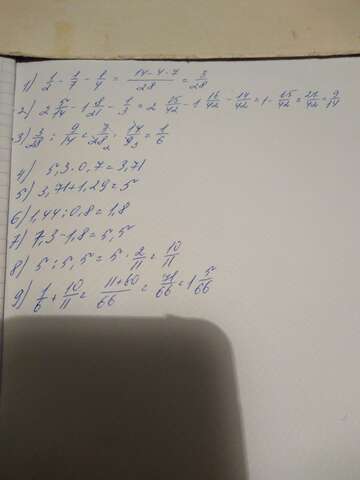 1) 1/2 - 1/7 - 1/4 = (14-4-7)/28 = 3/28
2) 2 5/14 - 1 8/21 - 1/3 = 2 15/42 - 1 16/42 - 14/42 = 1 - 15/42 = 27/42 = 9/14
3) 3/28 : 9/14 = 7/28 2 · 14/9 3 = 1/6
4) 5,3·0,7=3,71
5) 3,71+1,29=5
6) 1,44:0,8=1,8
7) 7,3-1,8=5,5
8) 5:5,5=5·2/11=10/11
9) 1/6+10/11=(11+60)/66=71/66=1 5/66